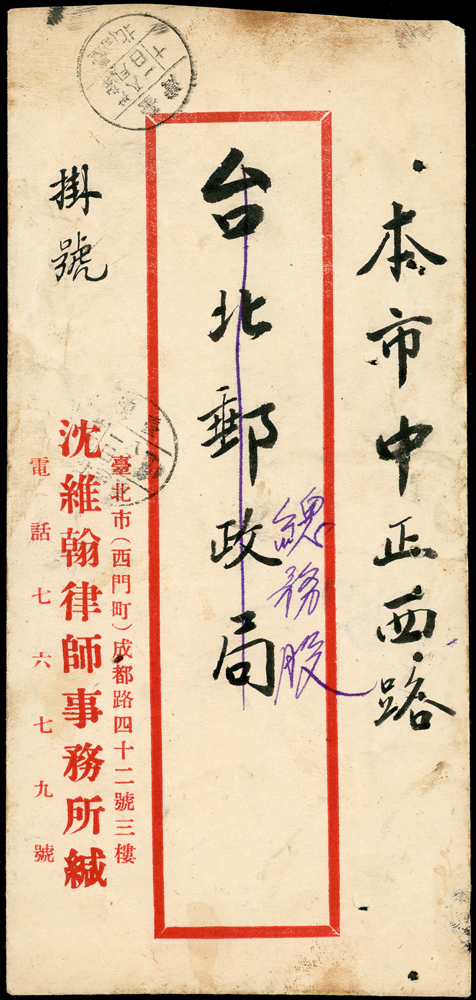 本市中正西路
台北郵政局
總務股
掛號
臺北市(西門町)成都路四十二號三樓
沈維翰律師事務所緘
電話七六七九號